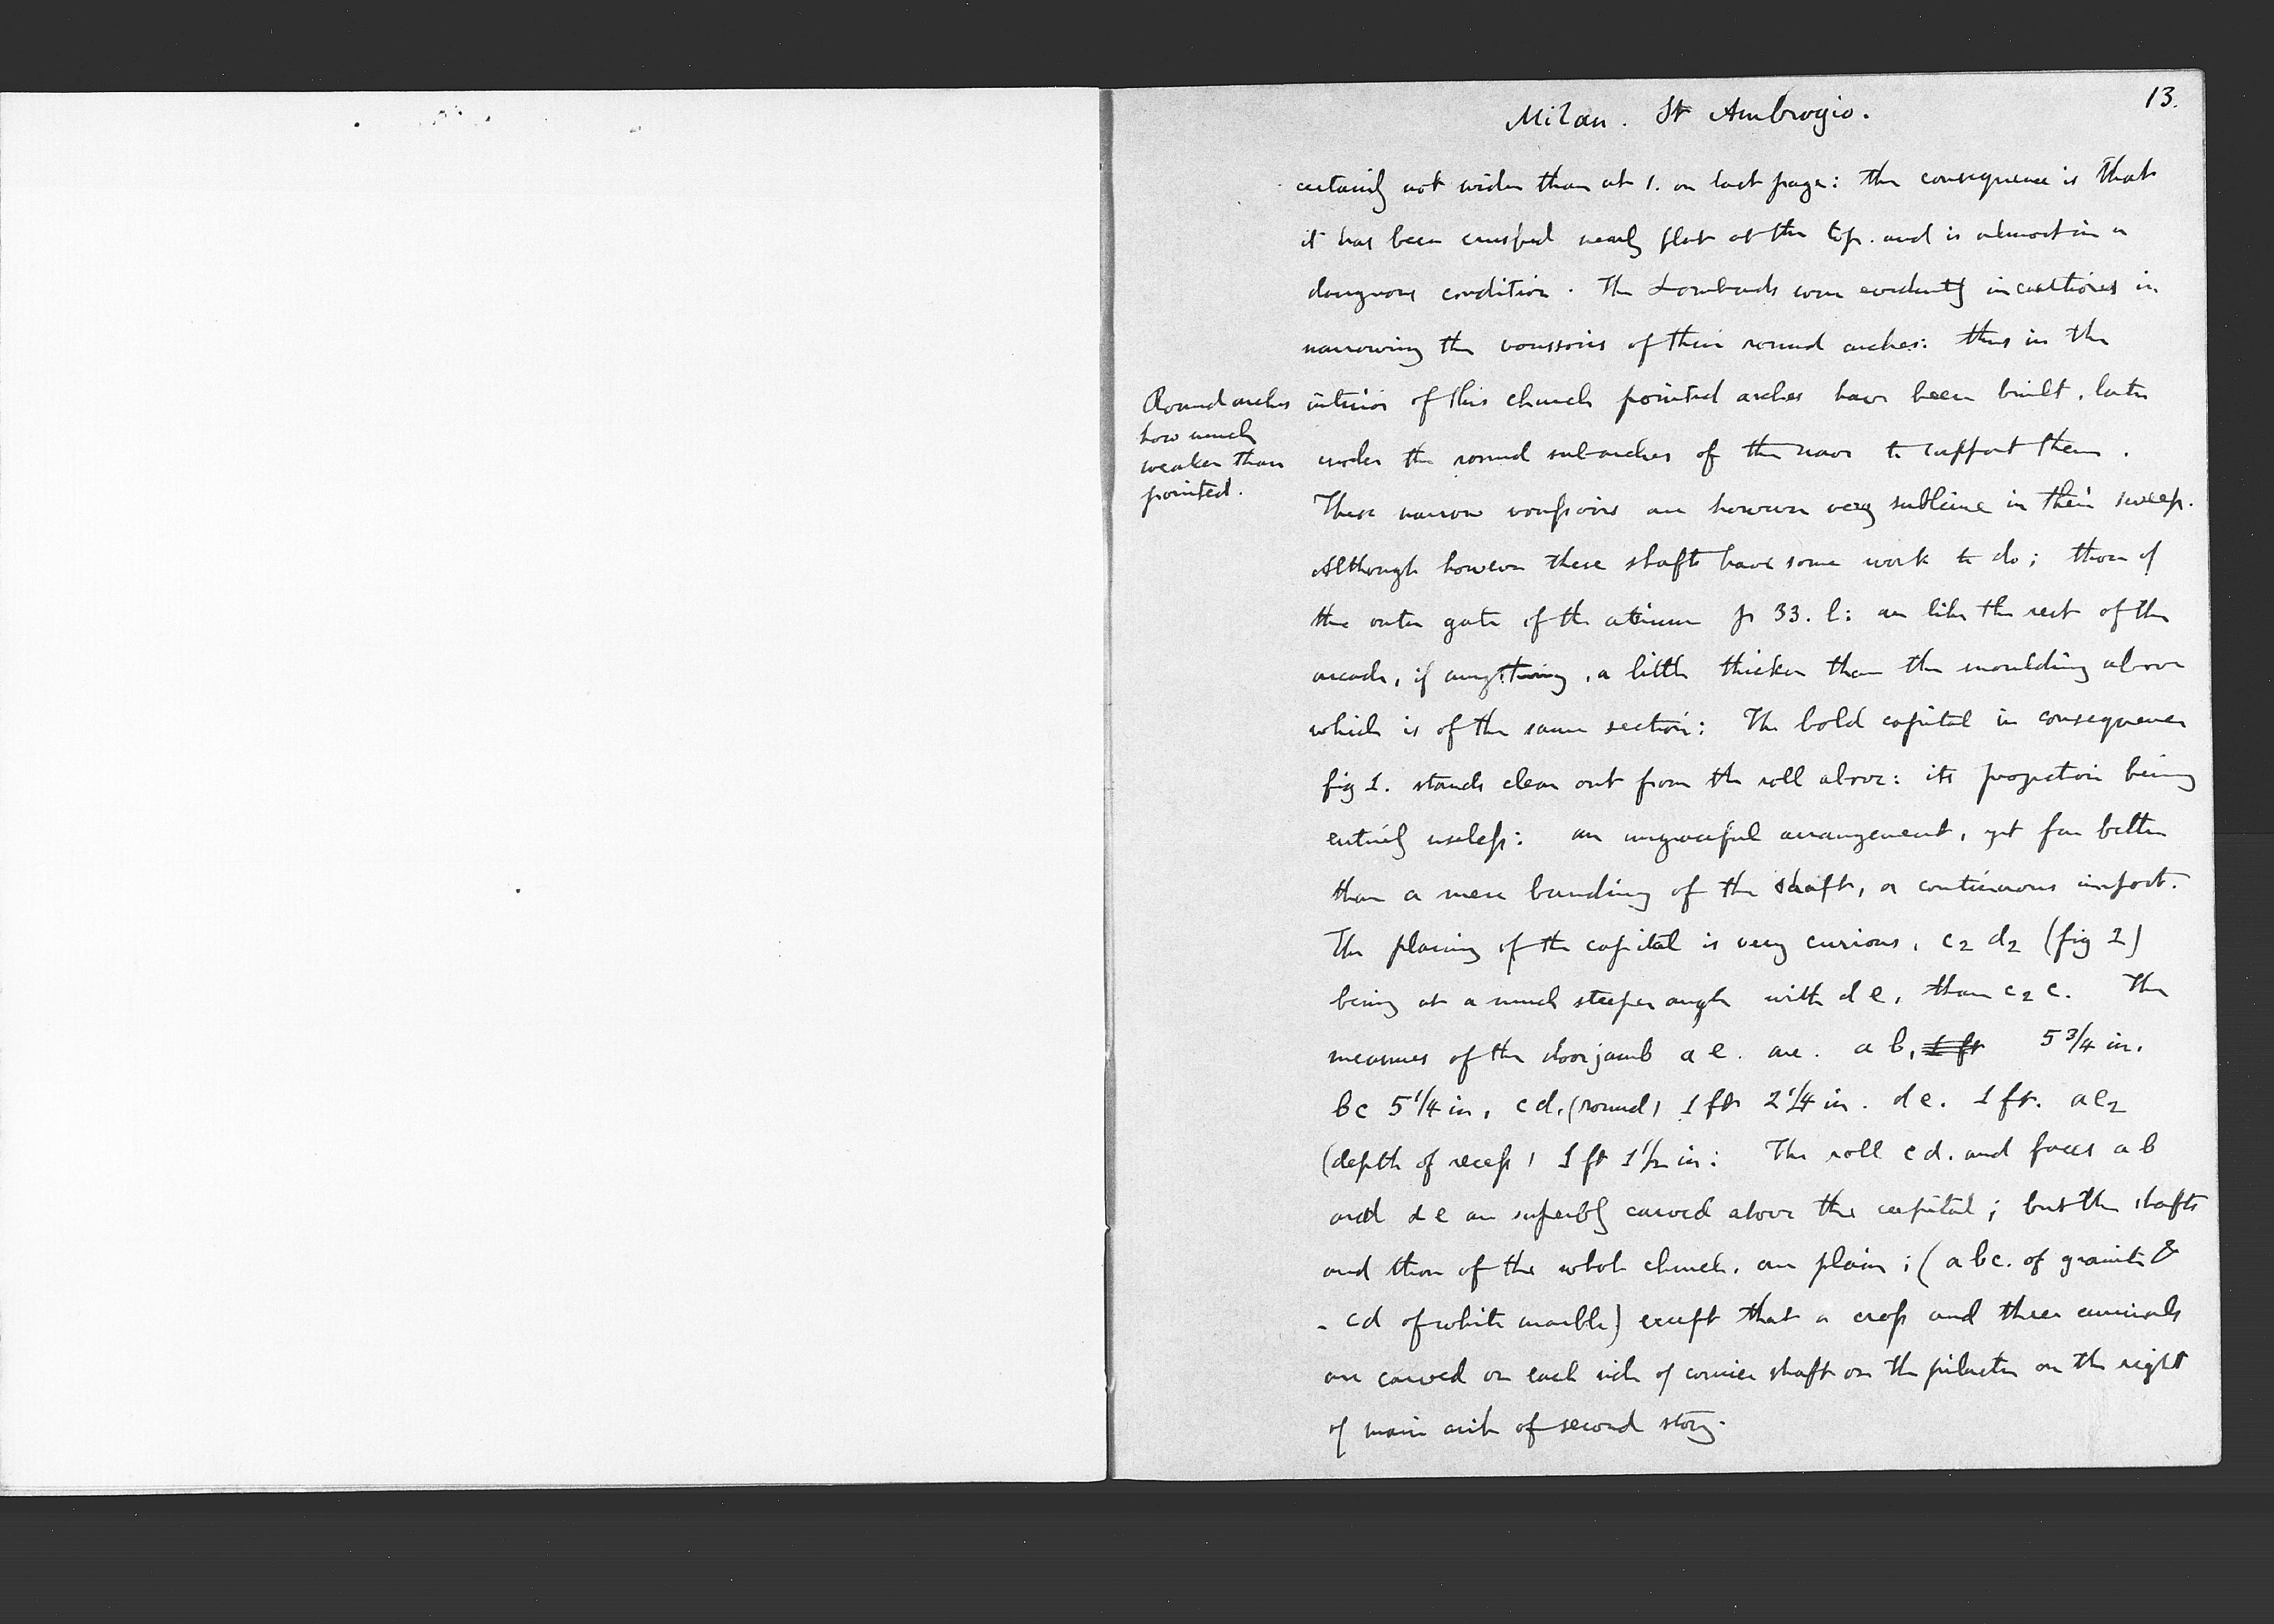 13.
Milan. St Ambrogio.
certainly not wider than at 1. on last page: the consequence is that
it has been crushed nearly flat at the top. and is almost in a
dangerous condition. The Lombards were evidently incautious in
narrowing the voussoirs of their round arches: thus in the
Round arches
how much
weaker than
pointed.
interior of this church pointed arches have been built, later
under the round sub-arches of the nave to support them.
These narrow voussoirs are however very sublime in their sweep.
Although however these shafts have some work to do; those of
the outer gate of the atrium p 33. l: are like the rest of the
arcade, if anything, a little thicker than the moulding above
which is of the same section: The bold capital in consequence
fig 1. stands clear out from the roll above: its projection being
entirely useless: an ungraceful arrangement, yet far better
than a mere banding of the shaft, or continuous impost.
The placing of the capital is very curious, c2 d2 (fig 2)
being at a much steeper angle with d e, than c2 c. The
measures of the door jamb a e. are. a b, 1 ft 5 3/4 in.
bc 5 1/4 in, c d, (round) 1 ft 2 1/4 in. d e. 1 ft. a e2
(depth of recess) 1 ft 1 1/2 in: The roll c d. and faces a b
and d e are superbly carved above the capital; but the shafts
and those of the whole church, are plain; (a b c. of granite &
- cd of white marble) except that a cross and three animals
are carved on each side of corner shaft on the pilaster on the right
of main arch of second story.